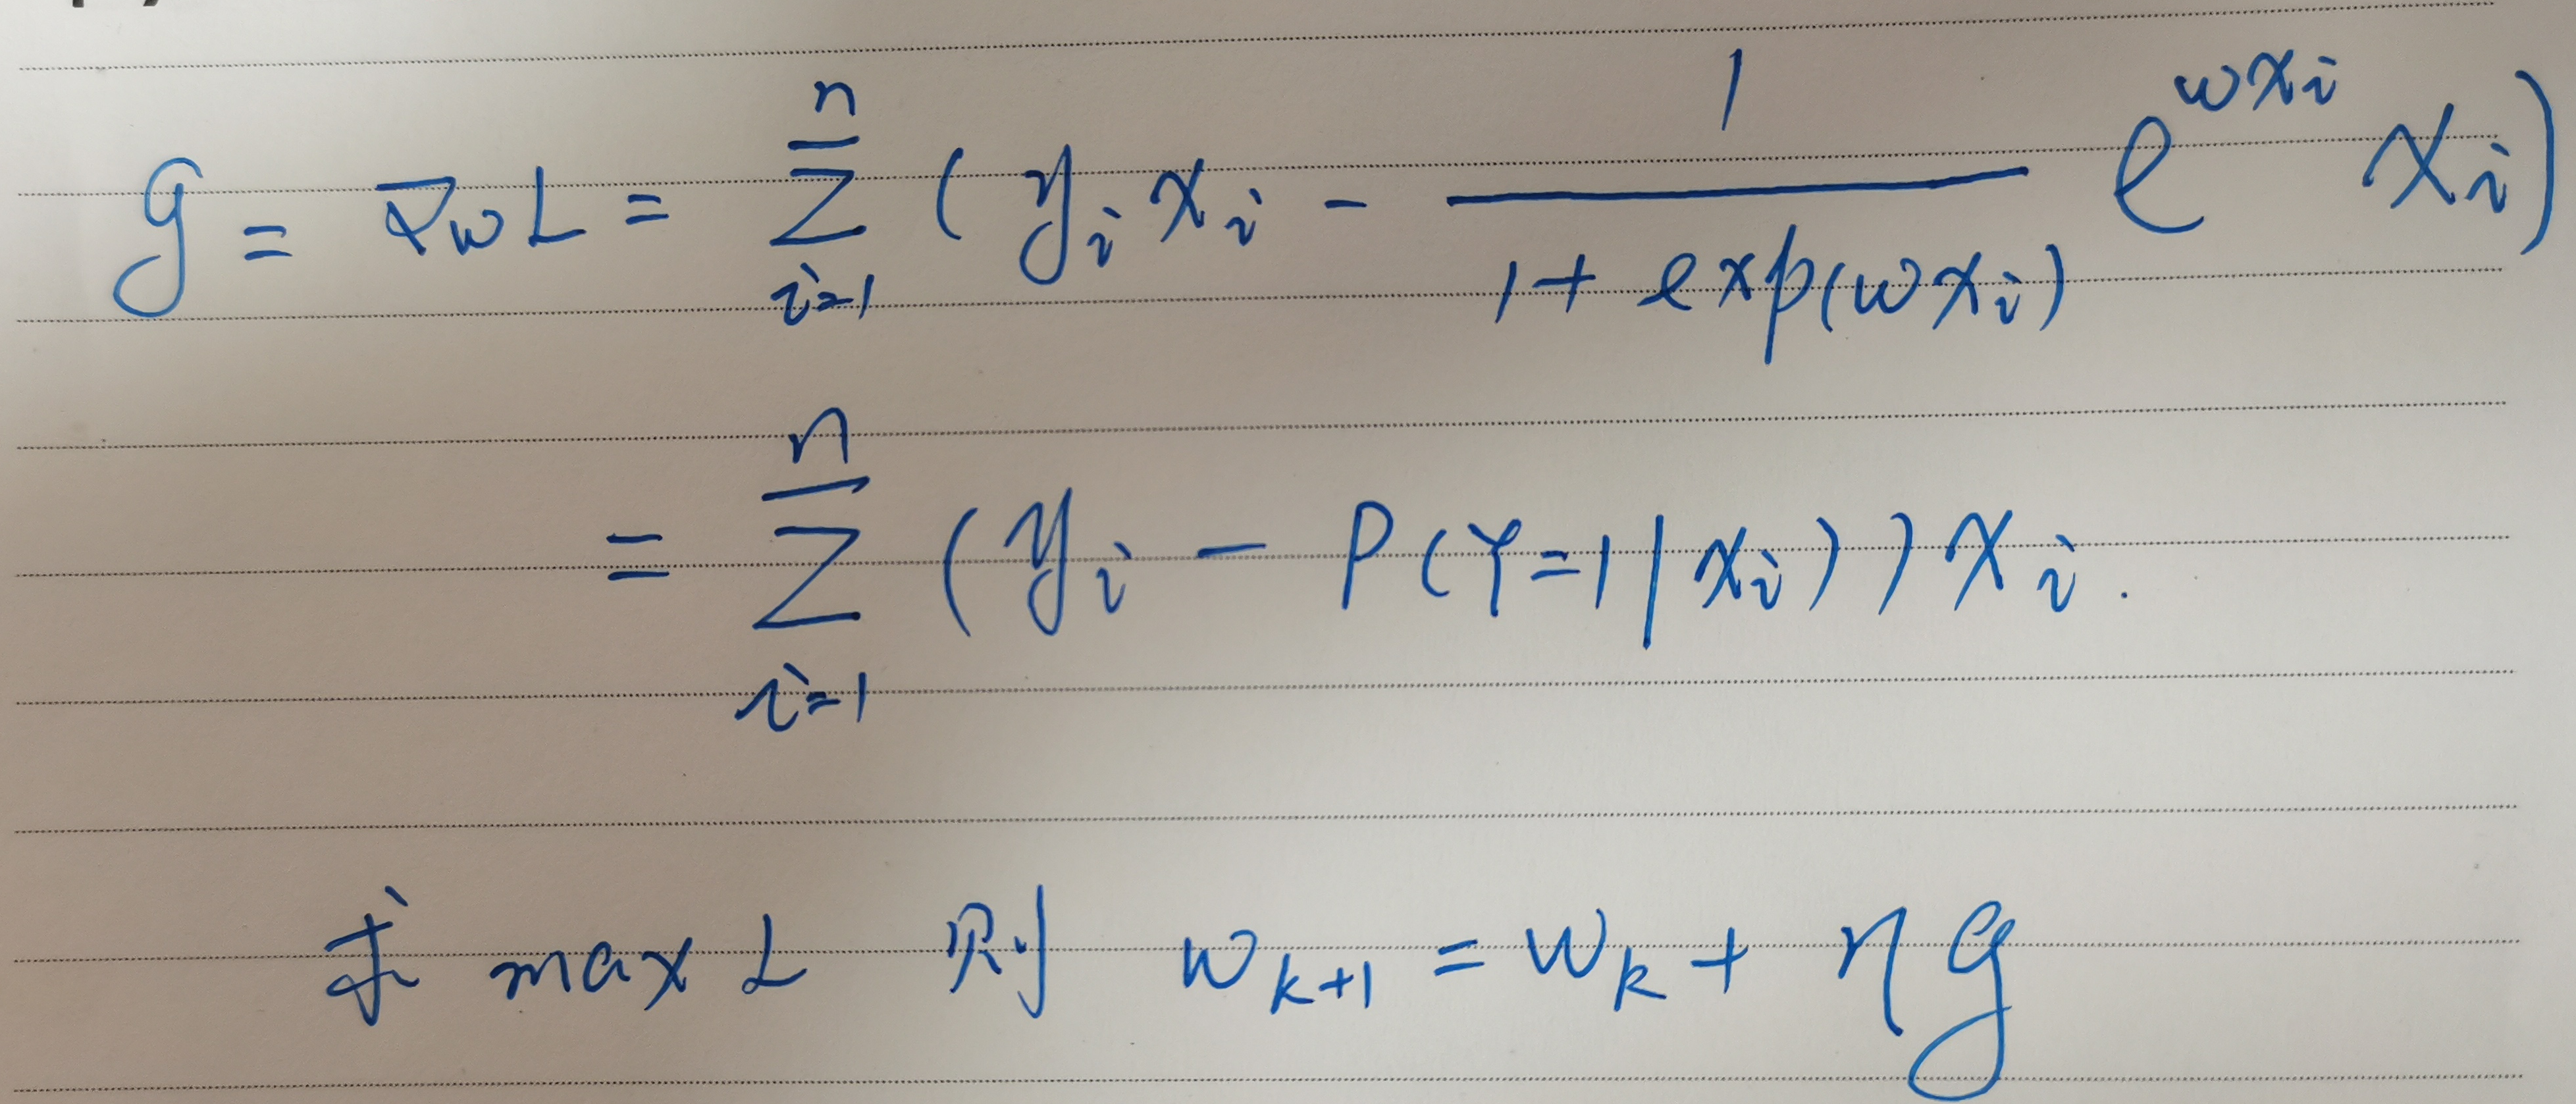 g = ∇_w L = \sum_{i=1}^{n} ( y_i x_i - \frac{1}{1 + exp(w x_i)} e^{w x_i} x_i )
= \sum_{i=1}^{n} ( y_i - P(Y=1 | x_i) ) x_i .
求 max L 则 w_{k+1} = w_k + η g